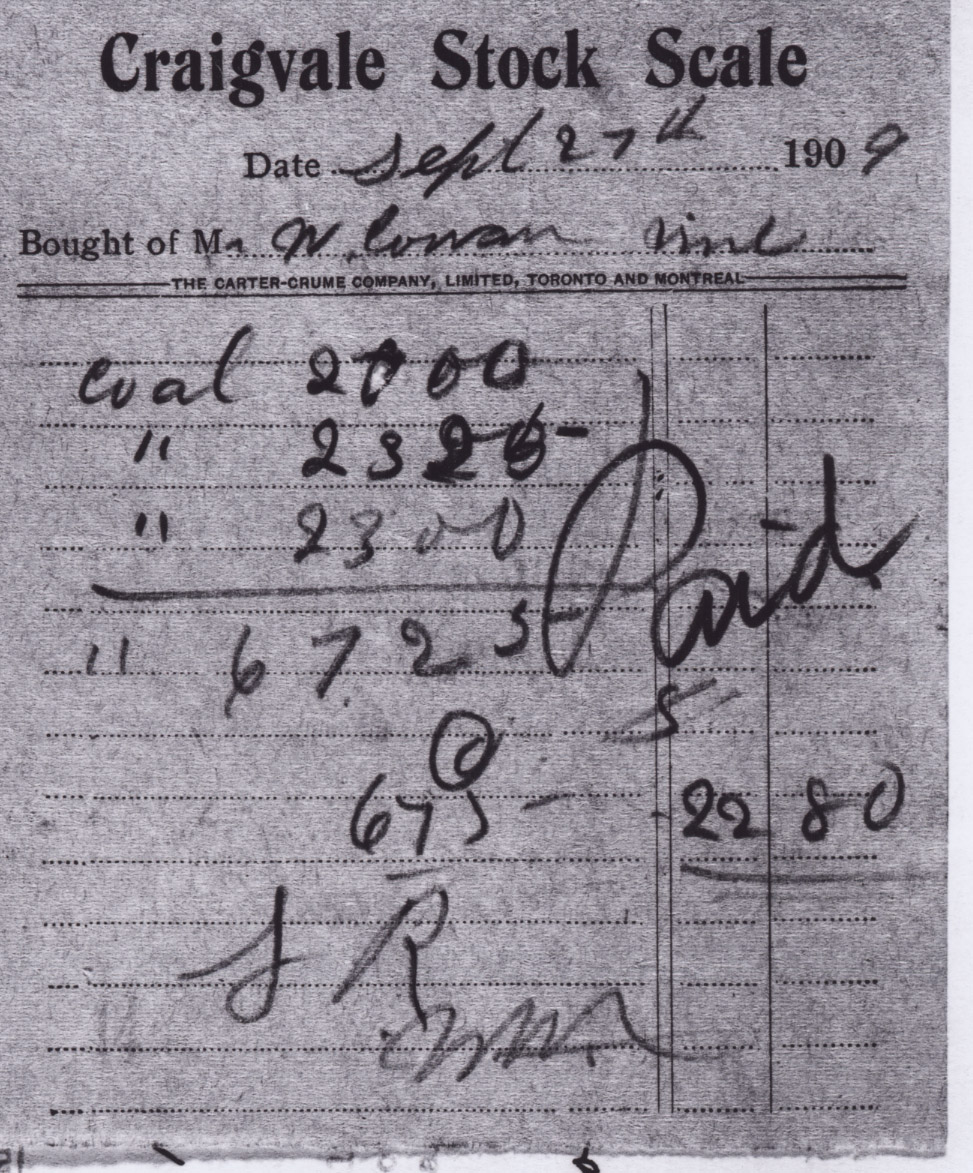 Craigvale Stock Scale
Date Sept 27th 1909
Bought of Mr W. Cowan
THE CARTER-CRUME COMPANY, LIMITED, TORONTO AND MONTREAL
coal 2100
" 2325
" 2300
" 6725
Paid
@ 5
675 - 22 80
J R